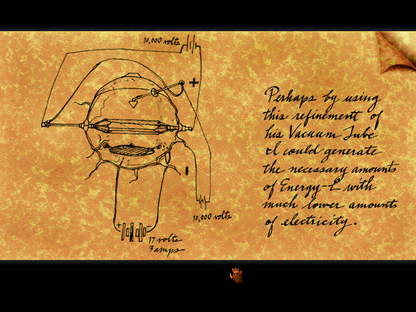 10,000 volts
+
Perhaps by using
this refinement of
his Vacuum Tube
I could generate
the necessary amounts
of Energy-L with
much lower amounts
of electricity.
-
10,000 volts
+
17 volts
7 amps